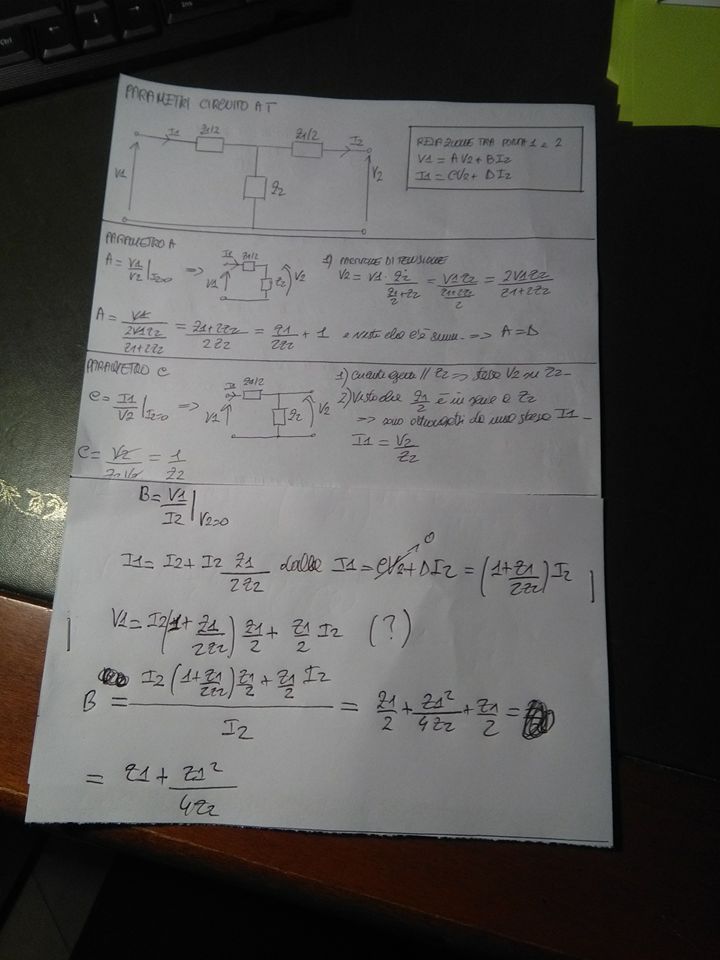 PARAMETRI CIRCUITO A T
I1 Z1/2 Z1/2 I2
V1 Z2 V2
RELAZIONE TRA PORTA 1 e 2
V1 = AV2 + BI2
I1 = CV2 + DI2
PARAMETRO A
A = V1/V2 | I2=0 =>
I1 Z1/2
V1 Z2 V2
1) PARTITORE DI TENSIONE
V2 = V1 · Z2/(Z1/2 + Z2) = V1Z2/((Z1+2Z2)/2) = 2V1Z2/(Z1+2Z2)
A = V1/(2V1Z2/(Z1+2Z2)) = (Z1+2Z2)/2Z2 = Z1/2Z2 + 1 e visto che c'è simm. => A=D
PARAMETRO C
C = I1/V2 | I2=0 =>
I1 Z1/2
V1 Z2 V2
1) Circuito aperto // Z2 => stessa V2 su Z2
2) Visto che Z1/2 è in serie a Z2
=> sono attraversati da una stessa I1
I1 = V2/Z2
C = V2/Z2V2 = 1/Z2
B = V1/I2 | V2=0
I1 = I2 + I2 Z1/2Z2 dalla I1 = CV2 + DI2 = (1 + Z1/2Z2) I2
0
V1 = I2 (1 + Z1/2Z2) Z1/2 + Z1/2 I2 (?)
B = (I2 (1 + Z1/2Z2) Z1/2 + Z1/2 I2)/I2 = Z1/2 + Z1²/4Z2 + Z1/2 =
= Z1 + Z1²/4Z2
Ctrl